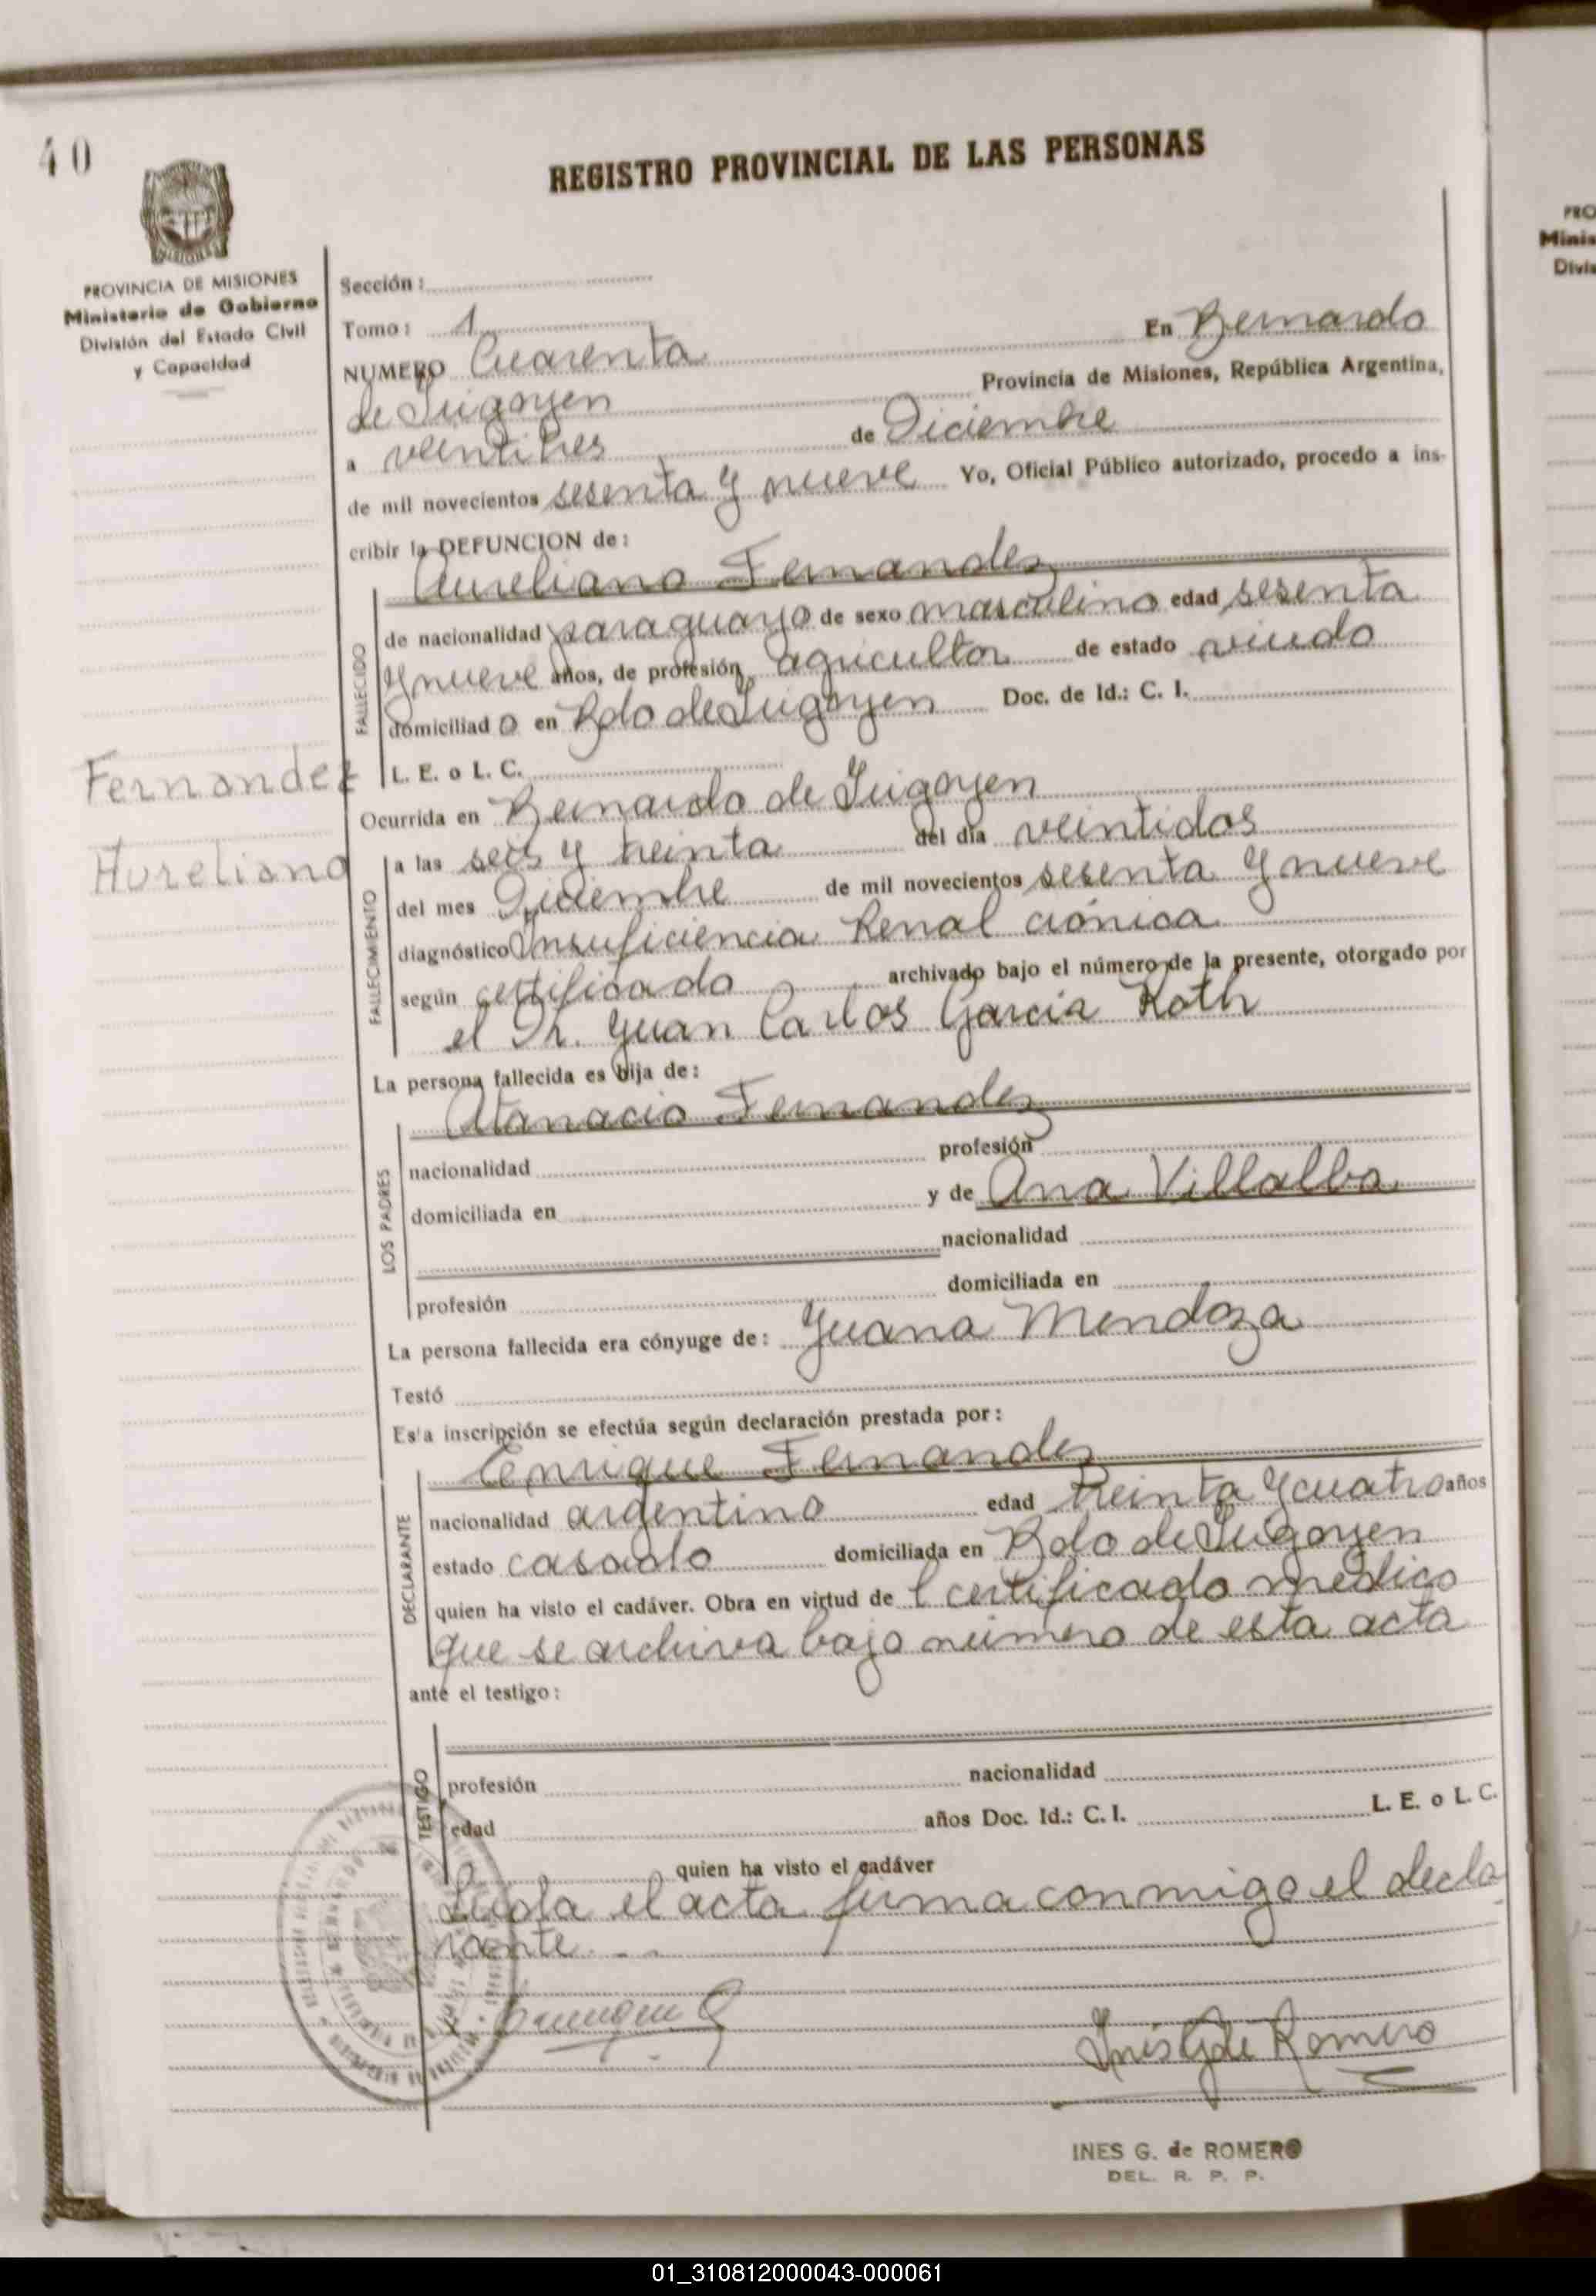 40
REGISTRO PROVINCIAL DE LAS PERSONAS
PROVINCIA DE MISIONES
Ministerio de Gobierno
División del Estado Civil
y Capacidad
Sección:
Tomo: 1
NUMERO Cuarenta En Bernardo
de Irigoyen Provincia de Misiones, República Argentina,
a veintitres de Diciembre
de mil novecientos sesenta y nueve Yo, Oficial Público autorizado, procedo a ins-
cribir la DEFUNCION de:
Aureliano Fernandez
FALLECIDO
de nacionalidad paraguayo de sexo masculino edad sesenta
y nueve años, de profesión agricultor de estado viudo
domiciliad o en Bdo de Irigoyen Doc. de Id.: C. I.
L. E. o L. C.
Fernandez
Aureliano
Ocurrida en Bernardo de Irigoyen
FALLECIMIENTO
a las seis y treinta del día veintidos
del mes Diciembre de mil novecientos sesenta y nueve
diagnóstico Insuficiencia Renal crónica
según certificado archivado bajo el número de la presente, otorgado por
el Dr. Juan Carlos Garcia Roth
La persona fallecida es hija de:
Atanacio Fernandez
LOS PADRES
nacionalidad profesión
domiciliada en y de Ana Villalba
nacionalidad
profesión domiciliada en
La persona fallecida era cónyuge de: Juana Mendoza
Testó
Esta inscripción se efectúa según declaración prestada por:
Enrique Fernandez
DECLARANTE
nacionalidad argentino edad treinta y cuatro años
estado casado domiciliada en Bdo de Irigoyen
quien ha visto el cadáver. Obra en virtud de l certificado médico
que se archiva bajo número de esta acta
ante el testigo:
TESTIGO
profesión nacionalidad
edad años Doc. Id.: C. I. L. E. o L. C.
quien ha visto el cadáver
Leida el acta firma conmigo el decla
rante. - -
Inés G de Romero
INES G. de ROMERO
DEL. R. P. P.
PRO
Minis
Divis
01_310812000043-000061